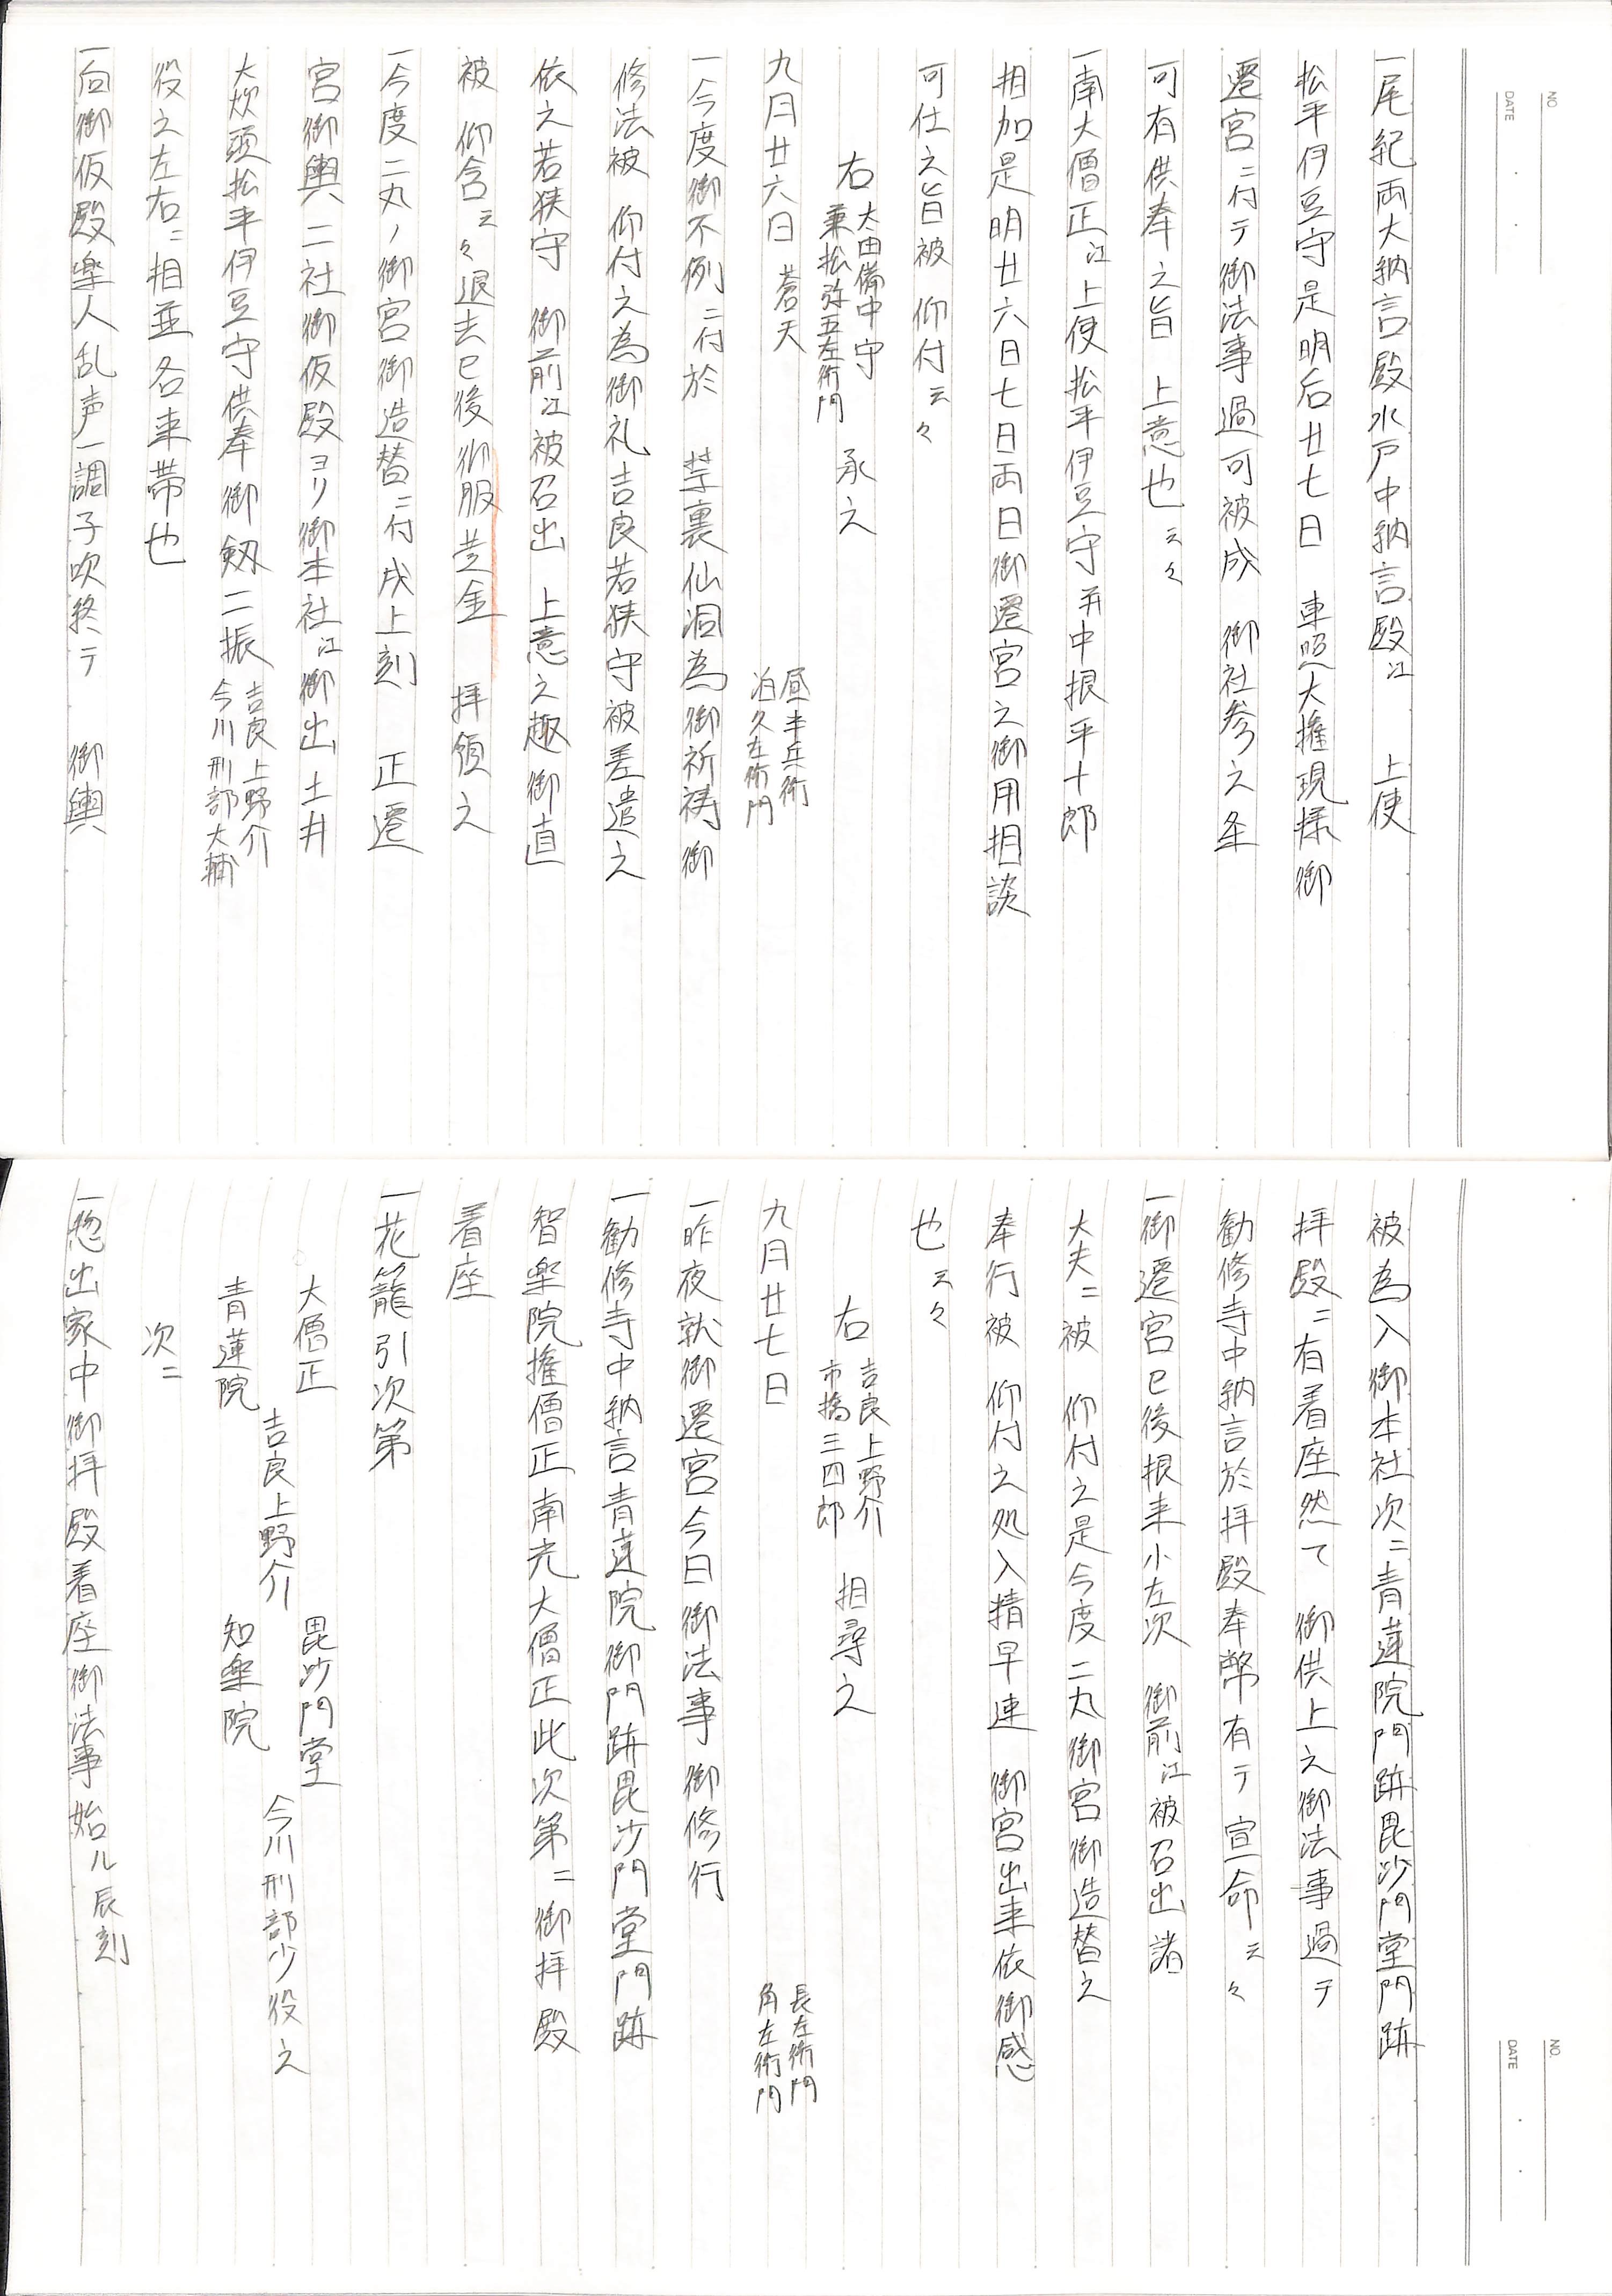 NO.
DATE
一尾紀両大納言殿水戸中納言殿江　上使
松平伊豆守是明后廿七日　東照大権現様御
遷宮ニ付テ御法事過可被成　御社参之条
可有供奉之旨　上意也云々
一南大僧正江上使松平伊豆守并中根平十郎
相加是明廿六日七日両日御遷宮之御用相談
可仕之旨被　仰付云々
右　太田備中守
兼松弥五左衛門　承之
九月廿六日　蒼天　昼半兵衛
泊久左衛門
一今度御不例ニ付於　禁裏仙洞為御祈祷御
修法被　仰付之為御礼吉良若狭守被差遣之
依之若狭守　御前江被召出　上意之趣御直
被　仰含云々退去已後御服黄金　拝領之
一今度二丸ノ御宮御造替ニ付戌上刻　正遷
宮御輿二社御仮殿ヨリ御本社江御出土井
大炊頭松平伊豆守供奉御剱二振　吉良上野介
今川刑部大輔
役之左右ニ相並各束帯也
一向御仮殿楽人乱声一調子吹終テ　御輿
NO.
DATE
被為入御本社次ニ青蓮院門跡毘沙門堂門跡
拝殿ニ有着座然て　御供上之御法事過テ
勧修寺中納言於拝殿奉幣有テ宣命云々
一御遷宮已後根来小左次　御前江被召出諸
大夫ニ被　仰付之是今度二丸御宮御造替之
奉行被　仰付之処入精早速　御宮出来依御感
也云々
右　吉良上野介
市橋三四郎　相尋之
九月廿七日　長左衛門
角左衛門
一昨夜就御遷宮今日御法事　御修行
一勧修寺中納言青蓮院御門跡毘沙門堂門跡
智楽院権僧正南光大僧正此次第ニ御拝殿
着座
一花籠引次第
大僧正　毘沙門堂
吉良上野介　今川刑部少役之
青蓮院　知楽院
次ニ
一惣出家中御拝殿着座御法事始ル辰刻